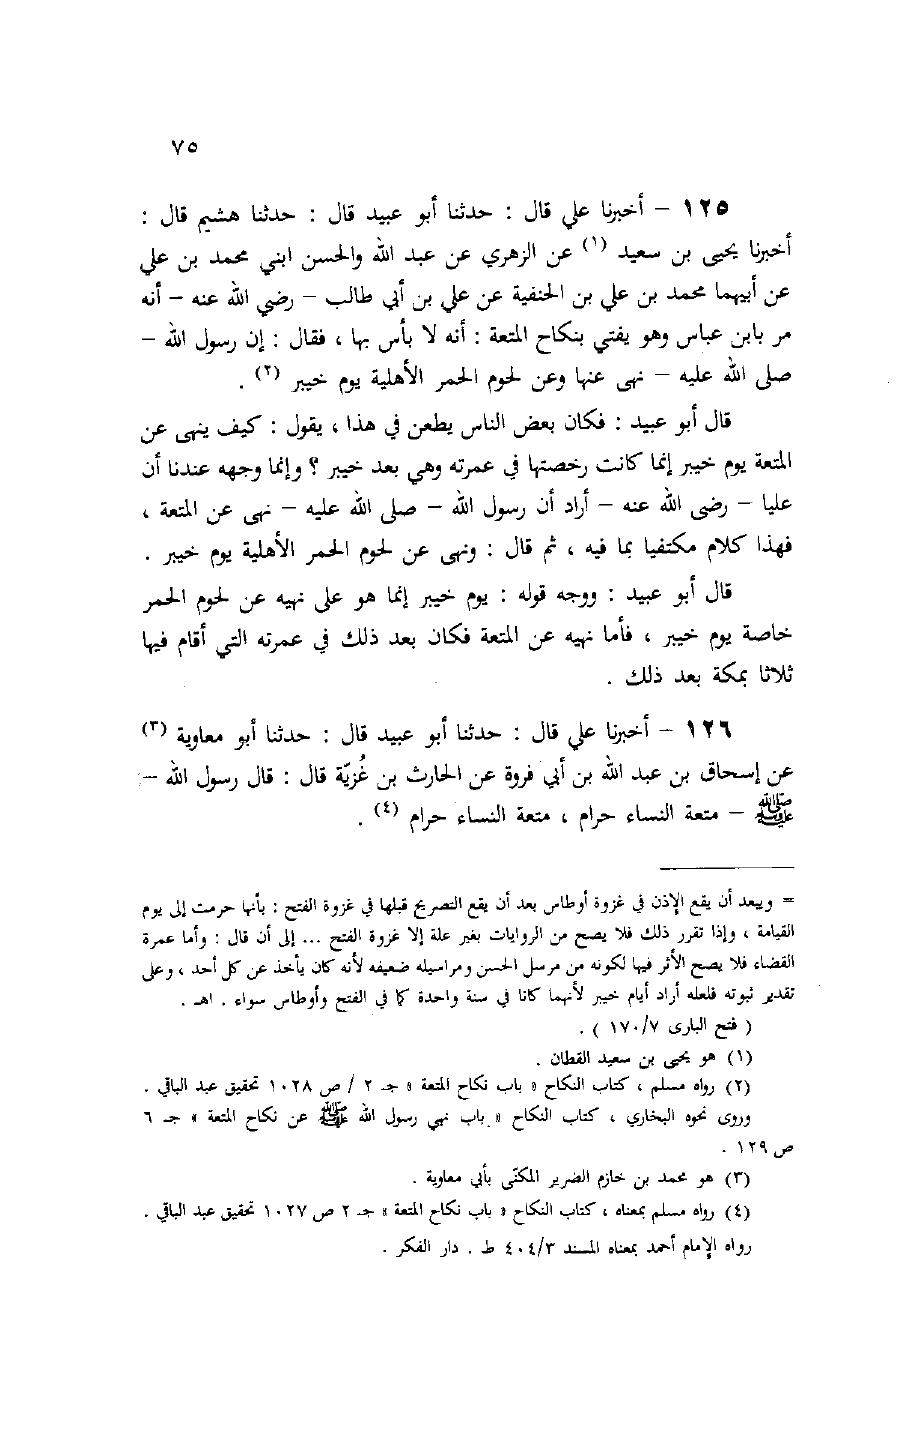 ٧٥
١٢٥ – أخبرنا علي قال : حدثنا أبو عبيد قال : حدثنا هشيم قال :
أخبرنا يحيى بن سعيد (١) عن الزهري عن عبد الله والحسن ابني محمد بن علي
عن أبيهما محمد بن علي بن الحنفية عن علي بن أبي طالب – رضي الله عنه – أنه
مر بابن عباس وهو يفتي بنكاح المتعة : أنه لا بأس بها ، فقال : إن رسول الله –
صلى الله عليه – نهى عنها وعن لحوم الحمر الأهلية يوم خيبر (٢) .
قال أبو عبيد : فكان بعض الناس يطعن في هذا ، يقول : كيف ينهى عن
المتعة يوم خيبر إنما كانت رخصتها في عمرته وهي بعد خيبر ؟ وإنما وجهه عندنا أن
عليا – رضى الله عنه – أراد أن رسول الله – صلى الله عليه – نهى عن المتعة ،
فهذا كلام مكتفيا بما فيه ، ثم قال : ونهى عن لحوم الحمر الأهلية يوم خيبر .
قال أبو عبيد : ووجه قوله : يوم خيبر إنما هو على نهيه عن لحوم الحمر
خاصة يوم خيبر ، فأما نهيه عن المتعة فكان بعد ذلك في عمرته التي أقام فيها
ثلاثا بمكة بعد ذلك .
١٢٦ – أخبرنا علي قال : حدثنا أبو عبيد قال : حدثنا أبو معاوية (٣)
عن إسحاق بن عبد الله بن أبي فروة عن الحارث بن غُزيّة قال : قال رسول الله –
ﷺ – متعة النساء حرام ، متعة النساء حرام (٤) .
= ويبعد أن يقع الإذن في غزوة أوطاس بعد أن يقع التصريح قبلها في غزوة الفتح : بأنها حرمت إلى يوم
القيامة ، وإذا تقرر ذلك فلا يصح من الروايات بغير علة إلا غزوة الفتح ... إلى أن قال : وأما عمرة
القضاء فلا يصح الأثر فيها لكونه من مرسل الحسن ومراسيله ضعيفه لأنه كان يأخذ عن كل أحد ، وعلى
تقدير ثبوته فلعله أراد أيام خيبر لأنهما كانا في سنة واحدة كما في الفتح وأوطاس سواء . اهـ .
( فتح البارى ١٧٠/٧ ) .
(١) هو يحيى بن سعيد القطان .
(٢) رواه مسلم ، كتاب النكاح « باب نكاح المتعة » جـ ٢ / ص ١٠٢٨ تحقيق عبد الباقي .
وروى نحوه البخاري ، كتاب النكاح « باب نهي رسول الله ﷺ عن نكاح المتعة » جـ ٦
ص ١٢٩ .
(٣) هو محمد بن خازم الضرير المكنّى بأبي معاوية .
(٤) رواه مسلم بمعناه ، كتاب النكاح « باب نكاح المتعة » جـ ٢ ص ١٠٢٧ تحقيق عبد الباقي .
رواه الإمام أحمد بمعناه المسند ٤٠٤/٣ ط . دار الفكر .